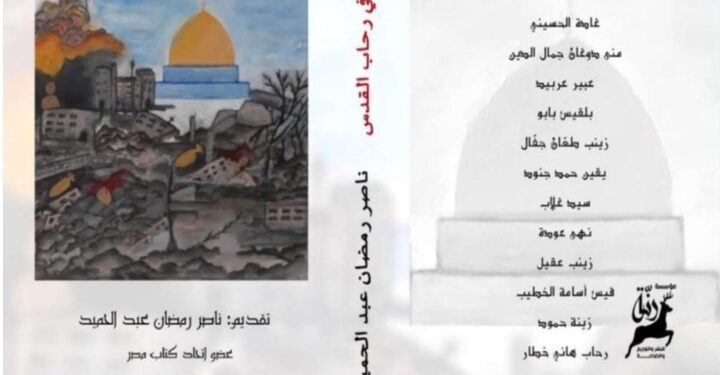 في رحاب القدس
ناصر رمضان عبد الحميد
تقديم: ناصر رمضان عبد الحميد
عضو اتحاد كتاب مصر
غادة الحسيني
منى دوغان جمال الدين
عبير عربيد
بلقيس بابو
زينب طفان جفال
يقين حمد جنود
سيد غلاب
نهى عودة
زينب عقيل
قيس أسامة الخطيب
زينة حمود
رحاب هاني خطار
مؤسسة
رنّة
للنشر والتوزيع